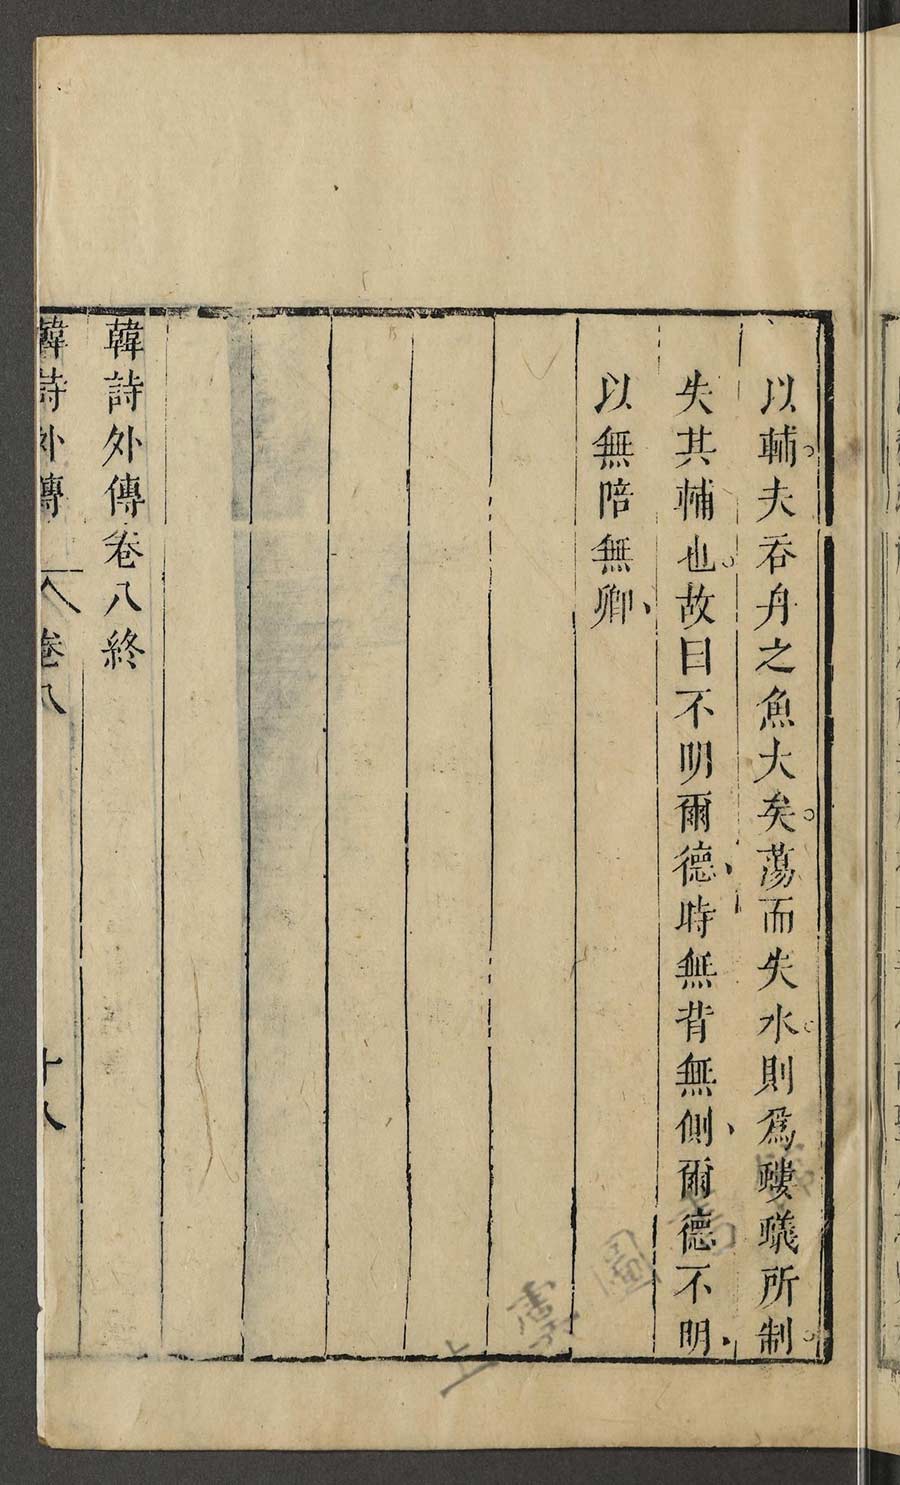 以輔夫吞舟之魚大矣蕩而失水則爲螻蟻所制
失其輔也故曰不明爾德時無背無側爾德不明
以無陪無卿
韓詩外傳卷八終
韓詩外傳 卷八 十八
上 圖書